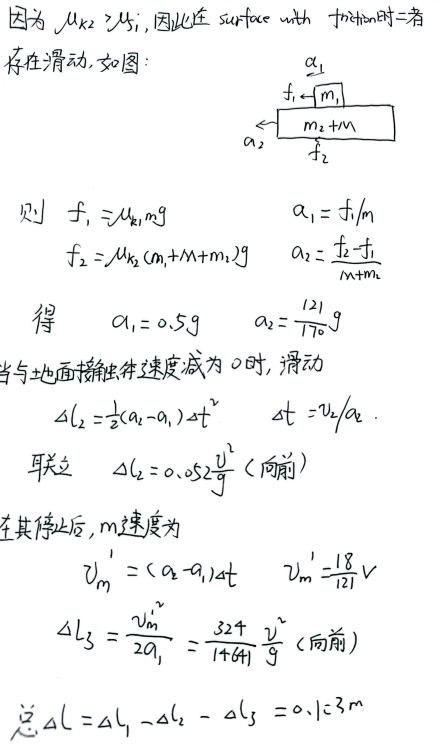 因为 μk2 > μs1, 因此在 surface with friction时二者
存在滑动, 如图:
a1
f1 ← m1
m2+M
a2
f2
则 f1 = μk1 mg a1 = f1/m
f2 = μk2 (m1+M+m2)g a2 = (f2-f1)/(M+m2)
得 a1 = 0.5g a2 = 121/170 g
当与地面接触体速度减为0时, 滑动
Δl2 = 1/2 (a2-a1)Δt² Δt = v2/a2 .
联立 Δl2 = 0.052 v²/g (向前)
在其停止后, m速度为
vm' = (a2-a1)Δt vm' = 18/121 v
Δl3 = vm'²/2a1 = 324/14641 v²/g (向前)
总Δl = Δl1 - Δl2 - Δl3 = 0.133m